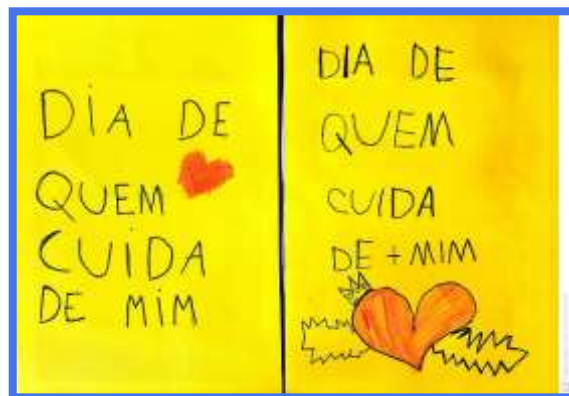 DiA DE
QUEM
CUiDA
DE MiM
DIA DE
QUEM
CUIDA
DE + MIM